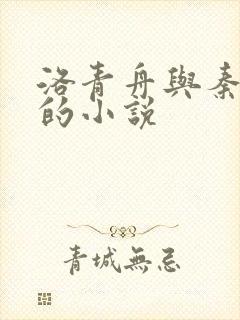 洛青舟與秦
的小說
青城無忌